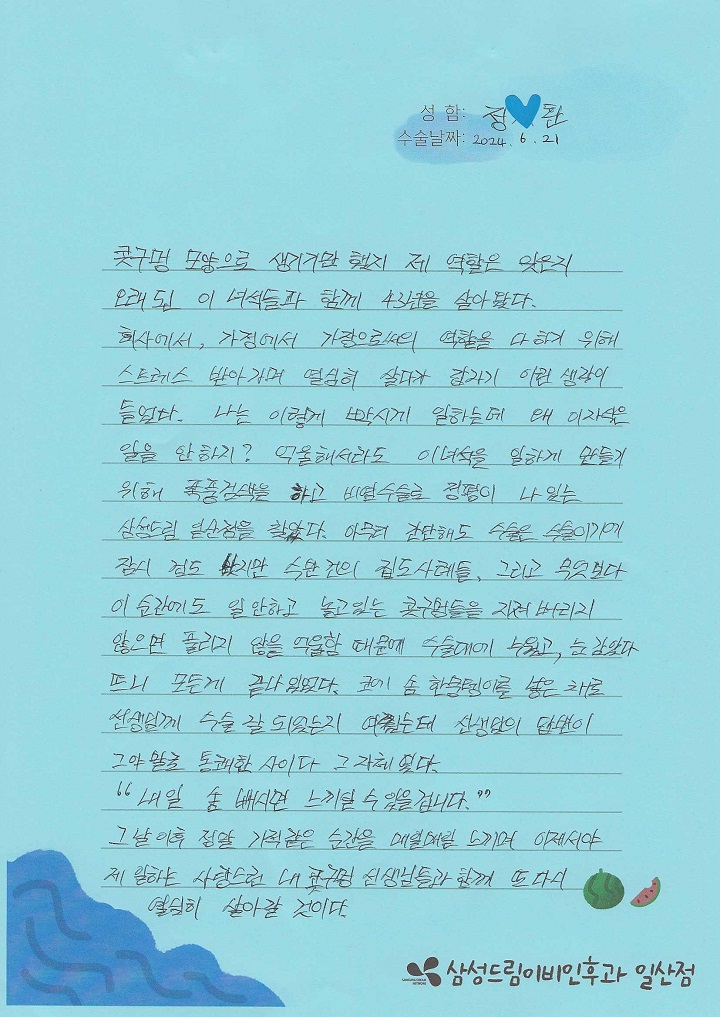 성 함: 정 환
수술날짜: 2024. 6. 21
콧구멍 모양으로 생기기만 했지 제 역할은 잊은지
오래 된 이 녀석들과 함께 43년을 살아 왔다.
회사에서, 가정에서 가장으로써의 역할을 다 하기 위해
스트레스 받아가며 열심히 살다가 갑자기 이런 생각이
들었다. 나는 이렇게 빡시게 일하는데 왜 이자식은
일을 안하지? 억울해서라도 이녀석을 일하게 만들기
위해 폭풍검색을 하고 비염수술로 정평이 나 있는
삼성드림 일산점을 찾았다. 아무리 간단해도 수술은 수술이기에
잠시 겁도 났지만 수만건의 집도사례들, 그리고 무엇보다
이 순간에도 일 안하고 놀고있는 콧구멍들을 지져 버리지
않으면 풀리지 않을 억울함 때문에 수술대에 누웠고, 눈 감았다
뜨니 모든게 끝나 있었다. 코에 솜 한술뎅이를 넣은 채로
선생님께 수술 잘 되었는지 여쭸는데 선생님의 답변이
그야 말로 통쾌한 사이다 그 자체 였다.
“내일 솜 빼시면 느끼실 수 있을겁니다.”
그날 이후 정말 기적같은 순간을 매일매일 느끼며 이제서야
제 일하는 사랑스런 내 콧구멍 선생님들과 함께 또 다시
열심히 살아갈 것이다.
삼성드림이비인후과 일산점